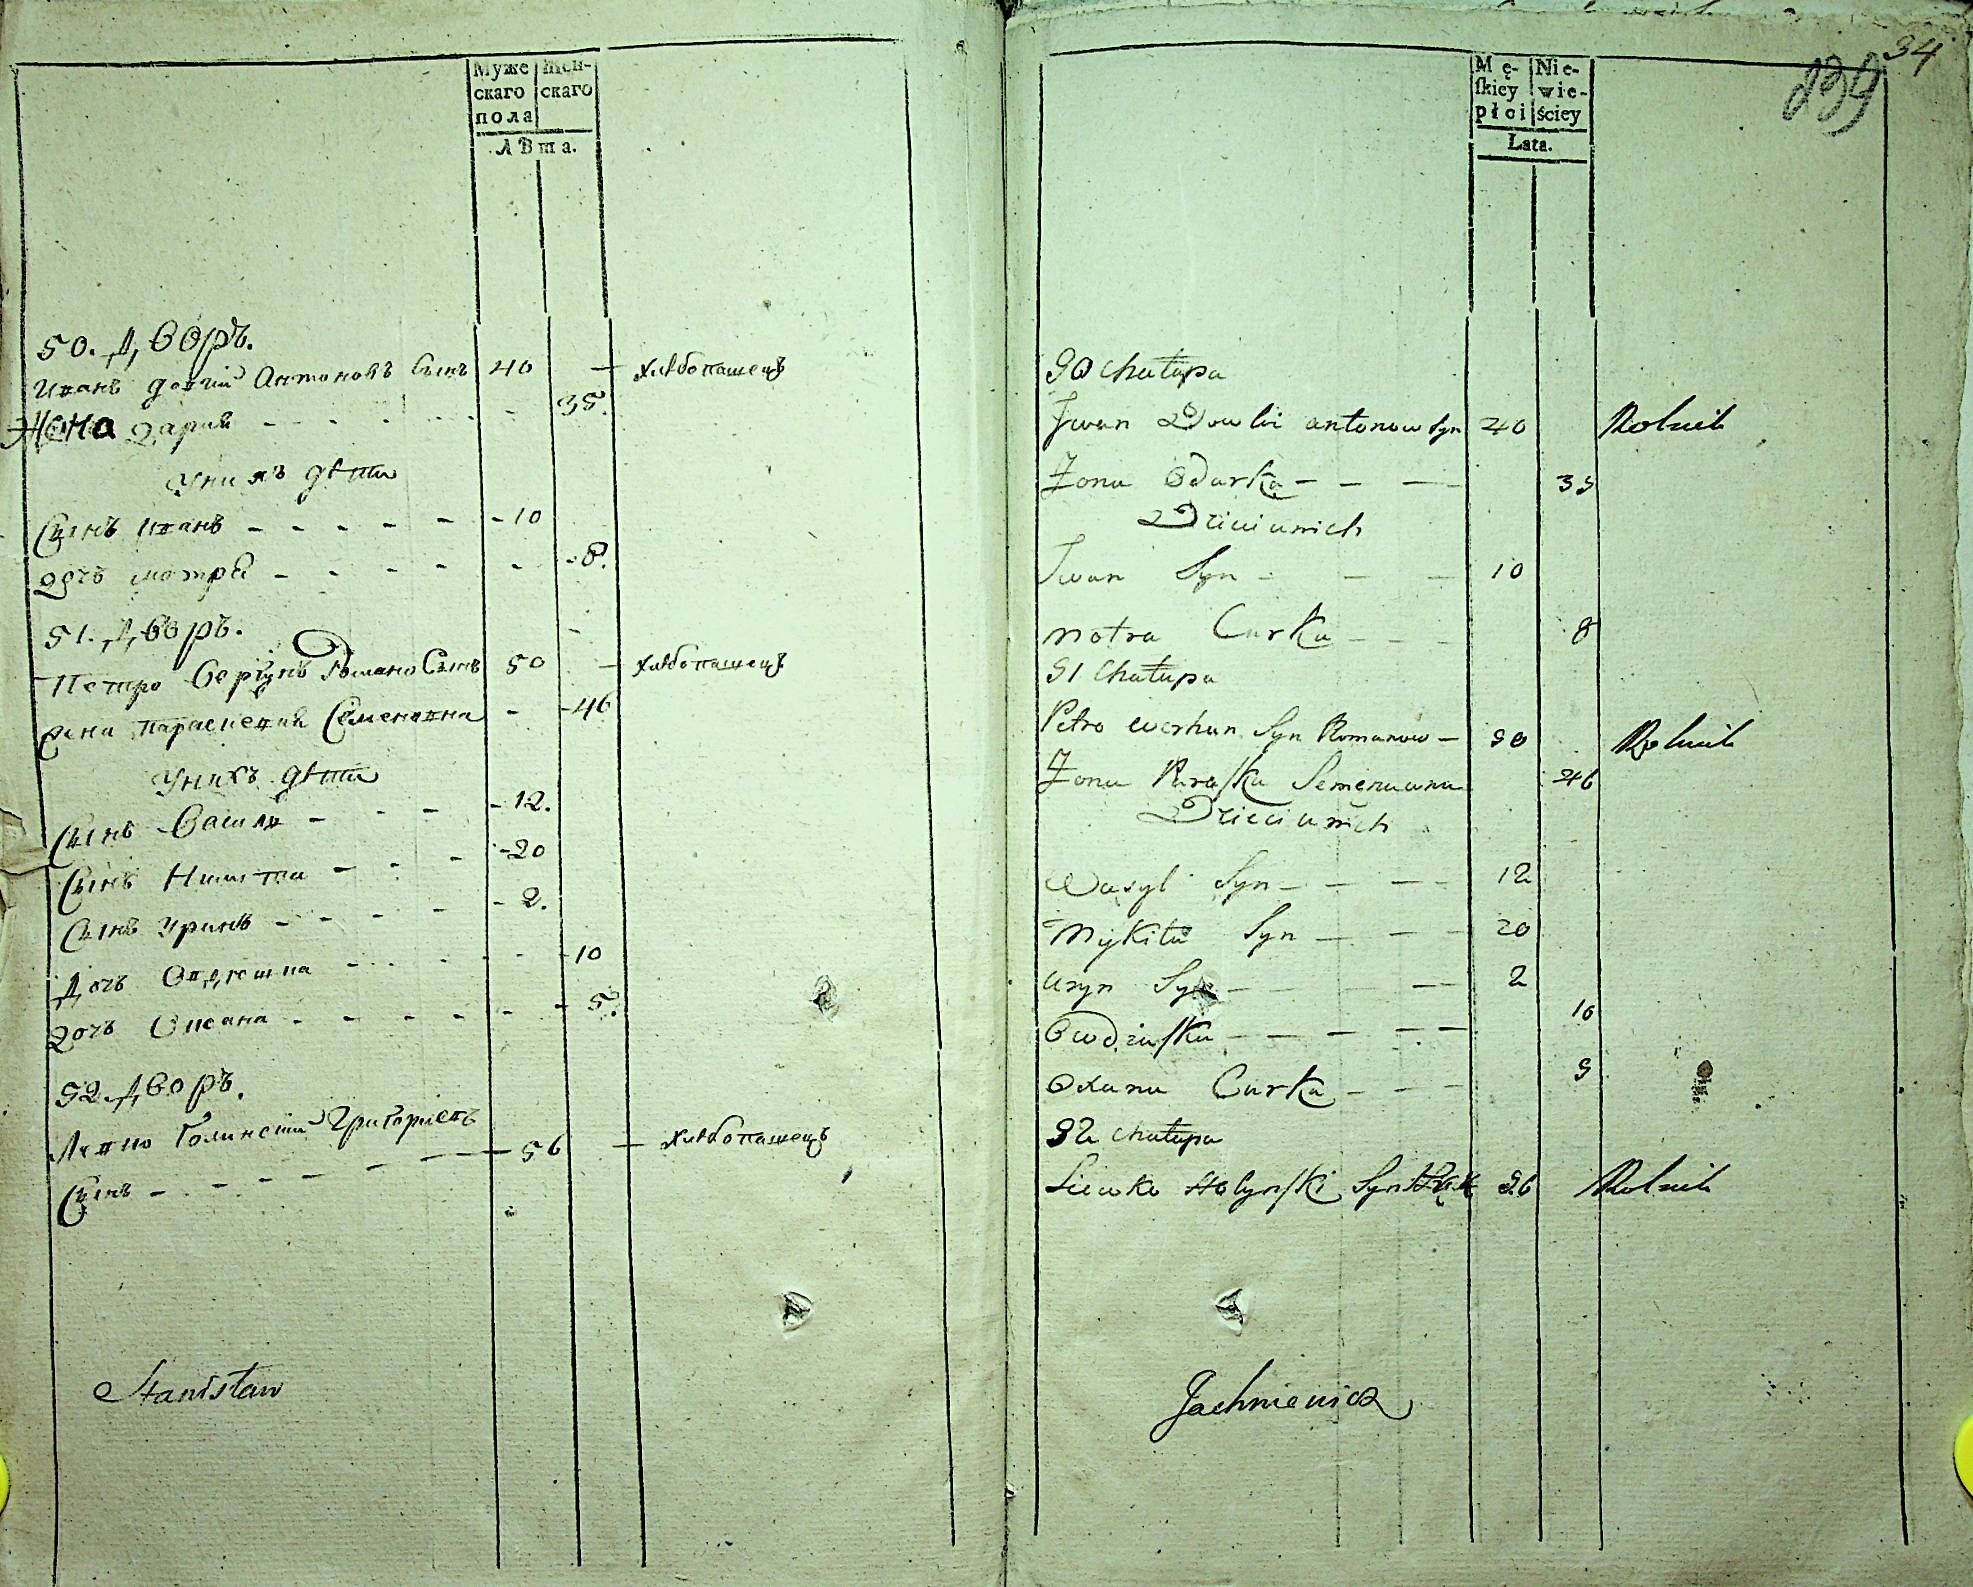 Муже
скаго
пола
Жен-
скаго
лѣта.
50. Дворъ.
Иванъ Довгий Антоновъ Сынъ 40 — хлѣбопашецъ
Жена Дария - - - - - 35.
У нихъ дѣти
Сынъ Иванъ - - - - - 10
Дочь Мотря - - - - - 8.
51. Дворъ.
Петро Вергунъ Романо Сынъ 50 — хлѣбопашецъ
Жена Параскевия Семеновна - 46
У нихъ дѣти
Сынъ Василь - - - - 12.
Сынъ Никита - - - 20
Сынъ Уринъ - - - - 2.
Дочь Овдюшка - - - - - 10
Дочь Оксана - - - - - - 5.
52. Дворъ.
Левко Голинский Григориевъ
Сынъ - - - - - - 56 — хлѣбопашецъ
Stanisław
34
239
Mę-
skiey
płci
Nie-
wie-
ściey
Lata.
50 Chałupa
Jwan Dowhi antonow Syn 40 Rolnik
Zona Odarka - - - 35
Dzieci unich
Jwan Syn - - - 10
Motra Curka - - - 8
51 Chałupa
Petro Werhun Syn Romanow - 50 Rolnik
Zona Paraska Semenowna 46
Dzieci unich
Wasyl Syn - - - 12
Mykita Syn - - - 20
Uryn Syn - - - - 2
Owdziuska - - - - - - 10
Oxana Curka - - - 5
52 Chałupa
Liewko Holynski Syn 56 Rolnik
Jachniewicz